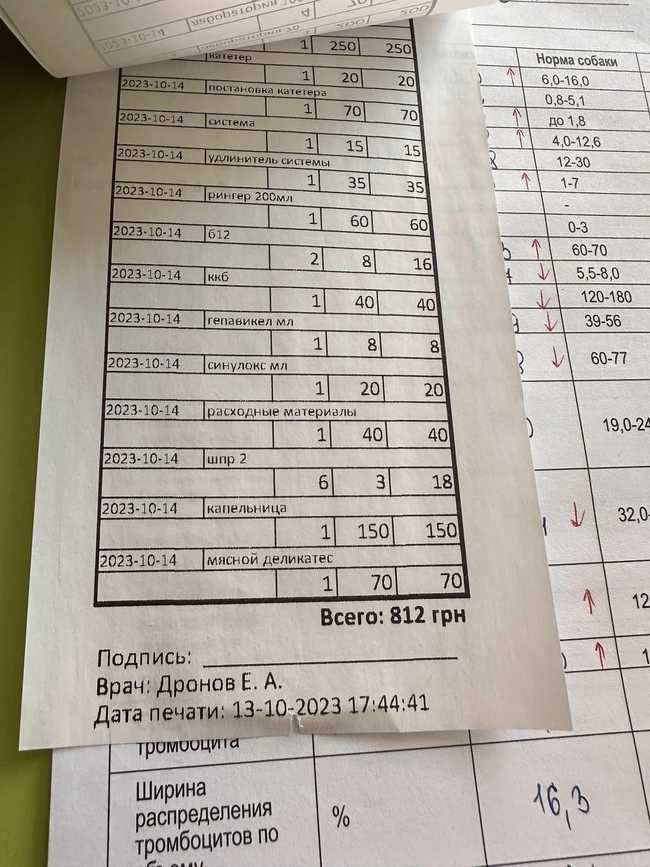 2023-10-14 лаборатория
4 70
200
1 250 250
катетер
1 20 20
2023-10-14 постановка катетера
1 70 70
2023-10-14 система
1 15 15
2023-10-14 удлинитель системы
1 35 35
2023-10-14 рингер 200мл
1 60 60
2023-10-14 б12
2 8 16
2023-10-14 ккб
1 40 40
2023-10-14 гепавикел мл
1 8 8
2023-10-14 синулокс мл
1 20 20
2023-10-14 расходные материалы
1 40 40
2023-10-14 шпр 2
6 3 18
2023-10-14 капельница
1 150 150
2023-10-14 мясной деликатес
1 70 70
Всего: 812 грн
Подпись:
Врач: Дронов Е. А.
Дата печати: 13-10-2023 17:44:41
Норма собаки
6,0-16,0
0,8-5,1
до 1,8
4,0-12,6
12-30
1-7
-
0-3
60-70
5,5-8,0
120-180
39-56
60-77
19,0-24
32,0-
12
1
тромбоцита
Ширина
распределения
тромбоцитов по
объему
%
16,3